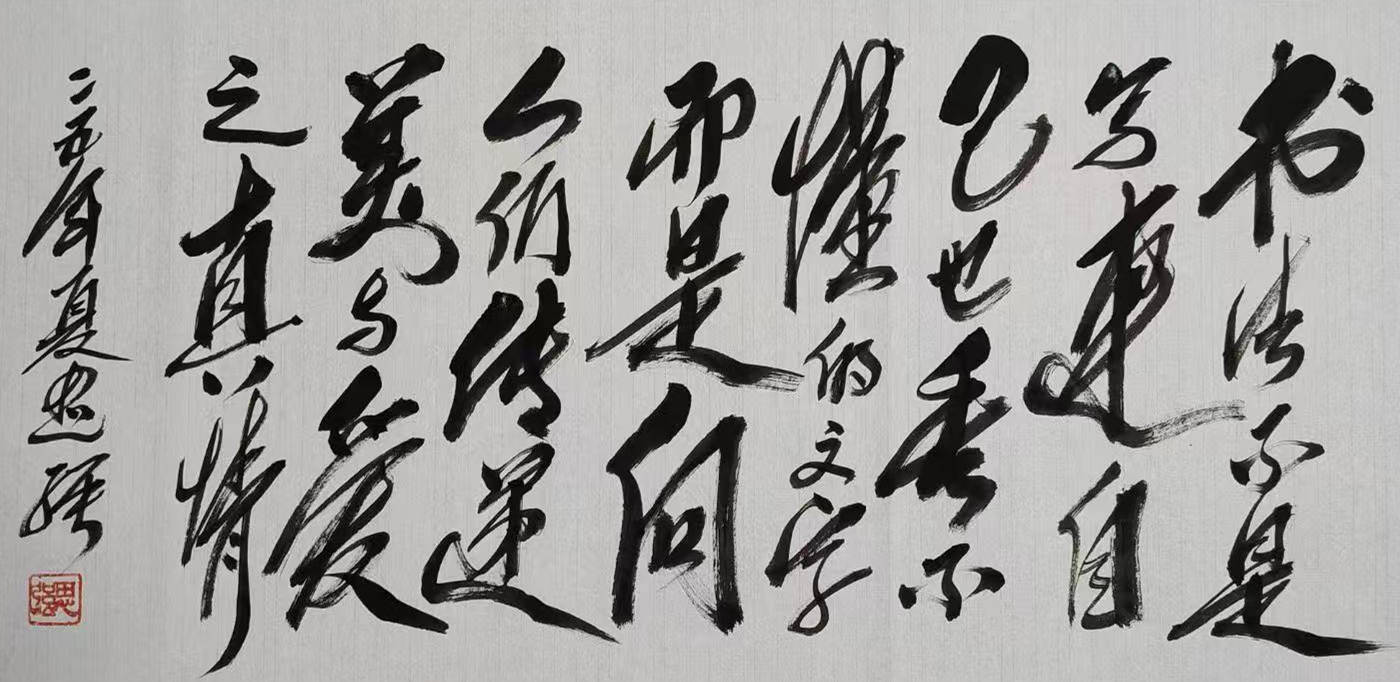 书法不是
写連自
己也看不
懂的文字
而是向
人们传递
美与爱
之真情
二五年夏思强